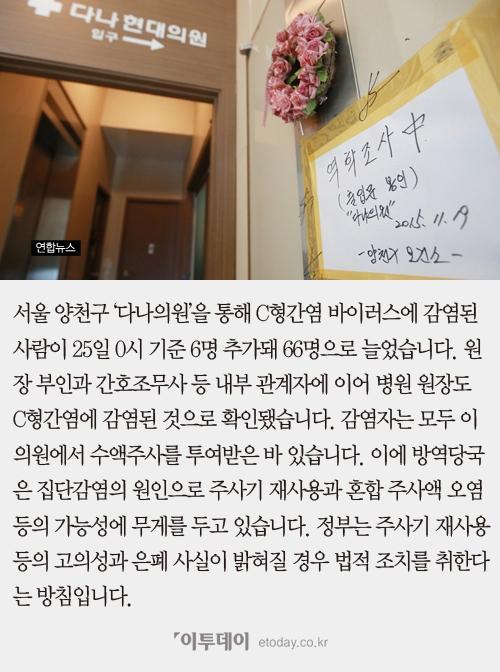 다나현대의원
입구
역학조사 中
(출입문 봉인)
"다나의원" 2015. 11. 19
- 양천구 보건소 -
연합뉴스
서울 양천구 ‘다나의원’을 통해 C형간염 바이러스에 감염된
사람이 25일 0시 기준 6명 추가돼 66명으로 늘었습니다. 원
장 부인과 간호조무사 등 내부 관계자에 이어 병원 원장도
C형간염에 감염된 것으로 확인됐습니다. 감염자는 모두 이
의원에서 수액주사를 투여받은 바 있습니다. 이에 방역당국
은 집단감염의 원인으로 주사기 재사용과 혼합 주사액 오염
등의 가능성에 무게를 두고 있습니다. 정부는 주사기 재사용
등의 고의성과 은폐 사실이 밝혀질 경우 법적 조치를 취한다
는 방침입니다.
이투데이 etoday.co.kr